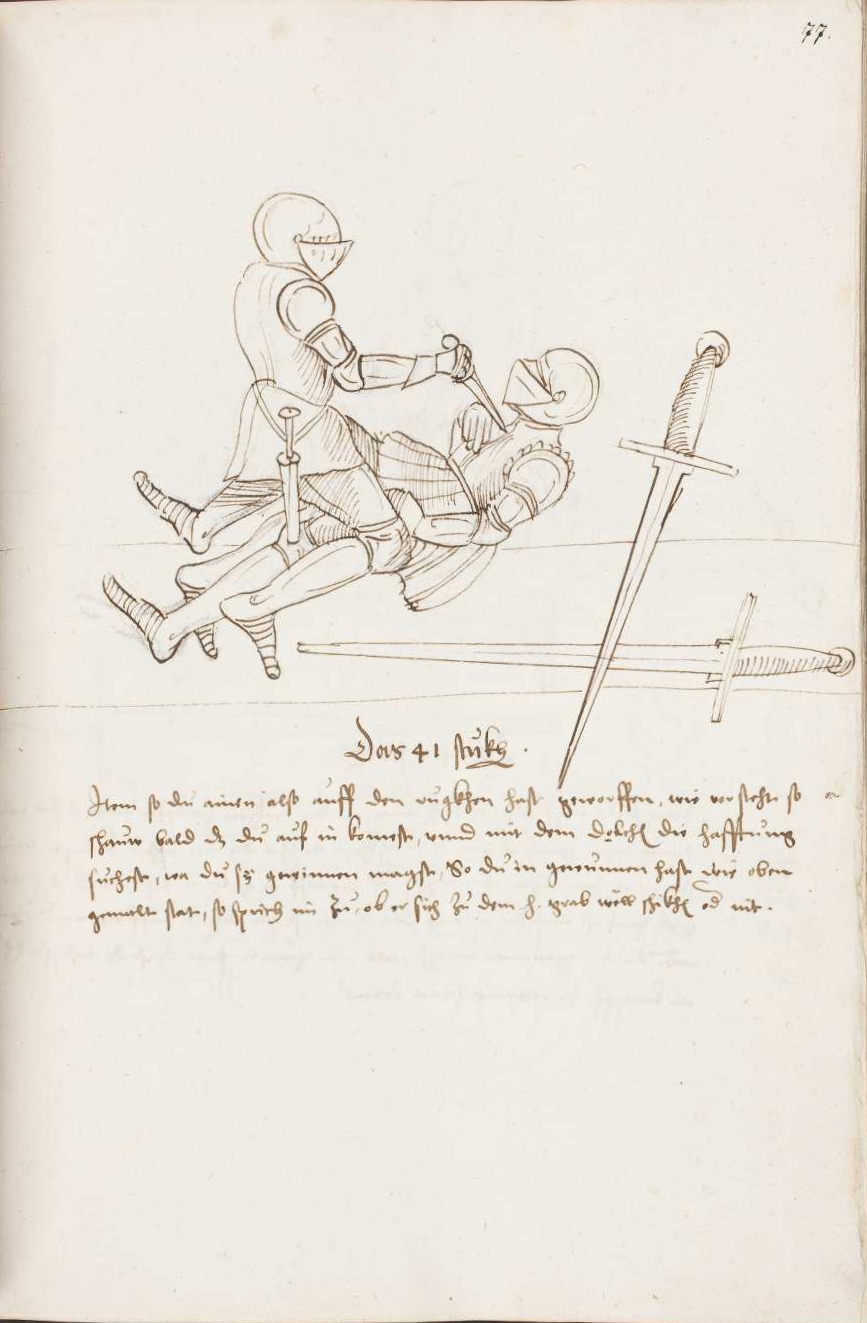 77.
Das 41 stukh .
Item so du ainen also auff den rugkhen hast geworffen, wie vor steht so
schauw bald dz du auf in komest, vnnd mit dem dolch die hafftung
suchest, wa du sy gewinnen magst, So du in gewunnen hast wie oben
gemalt stat, so sprich im zu, ob er sich zu dem h. grab well schikh od nit.